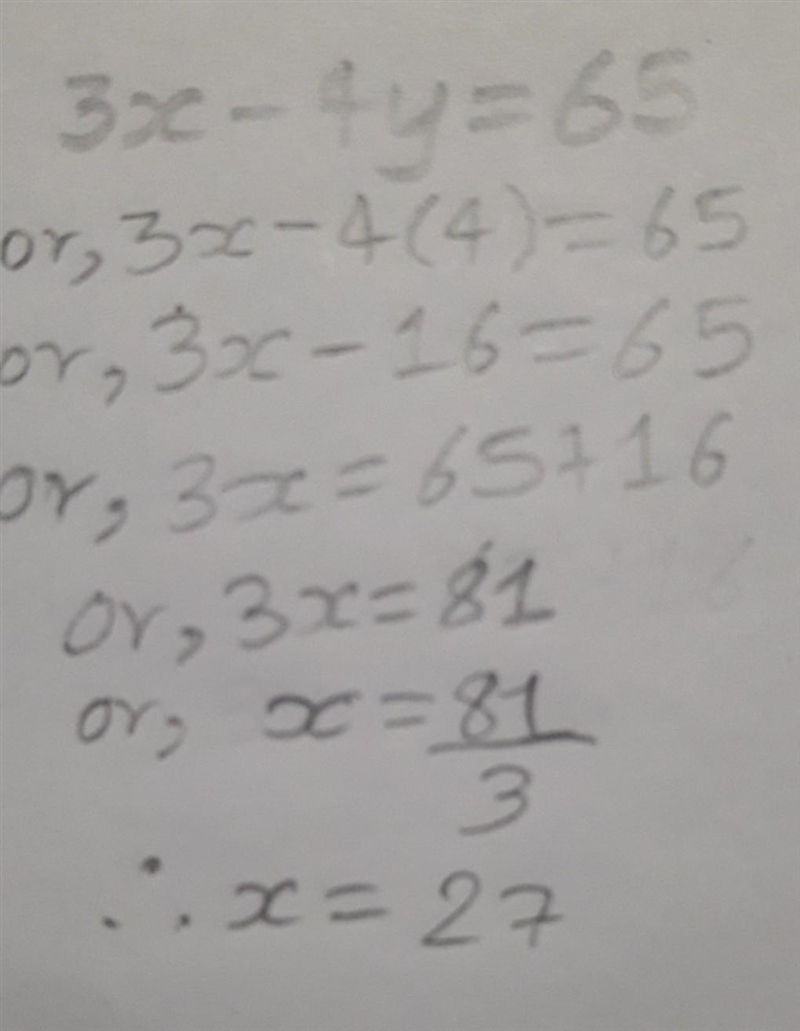 3x - 4y = 65
or, 3x - 4(4) = 65
or, 3x - 16 = 65
or, 3x = 65 + 16
or, 3x = 81
or, x = 81/3
∴ x = 27